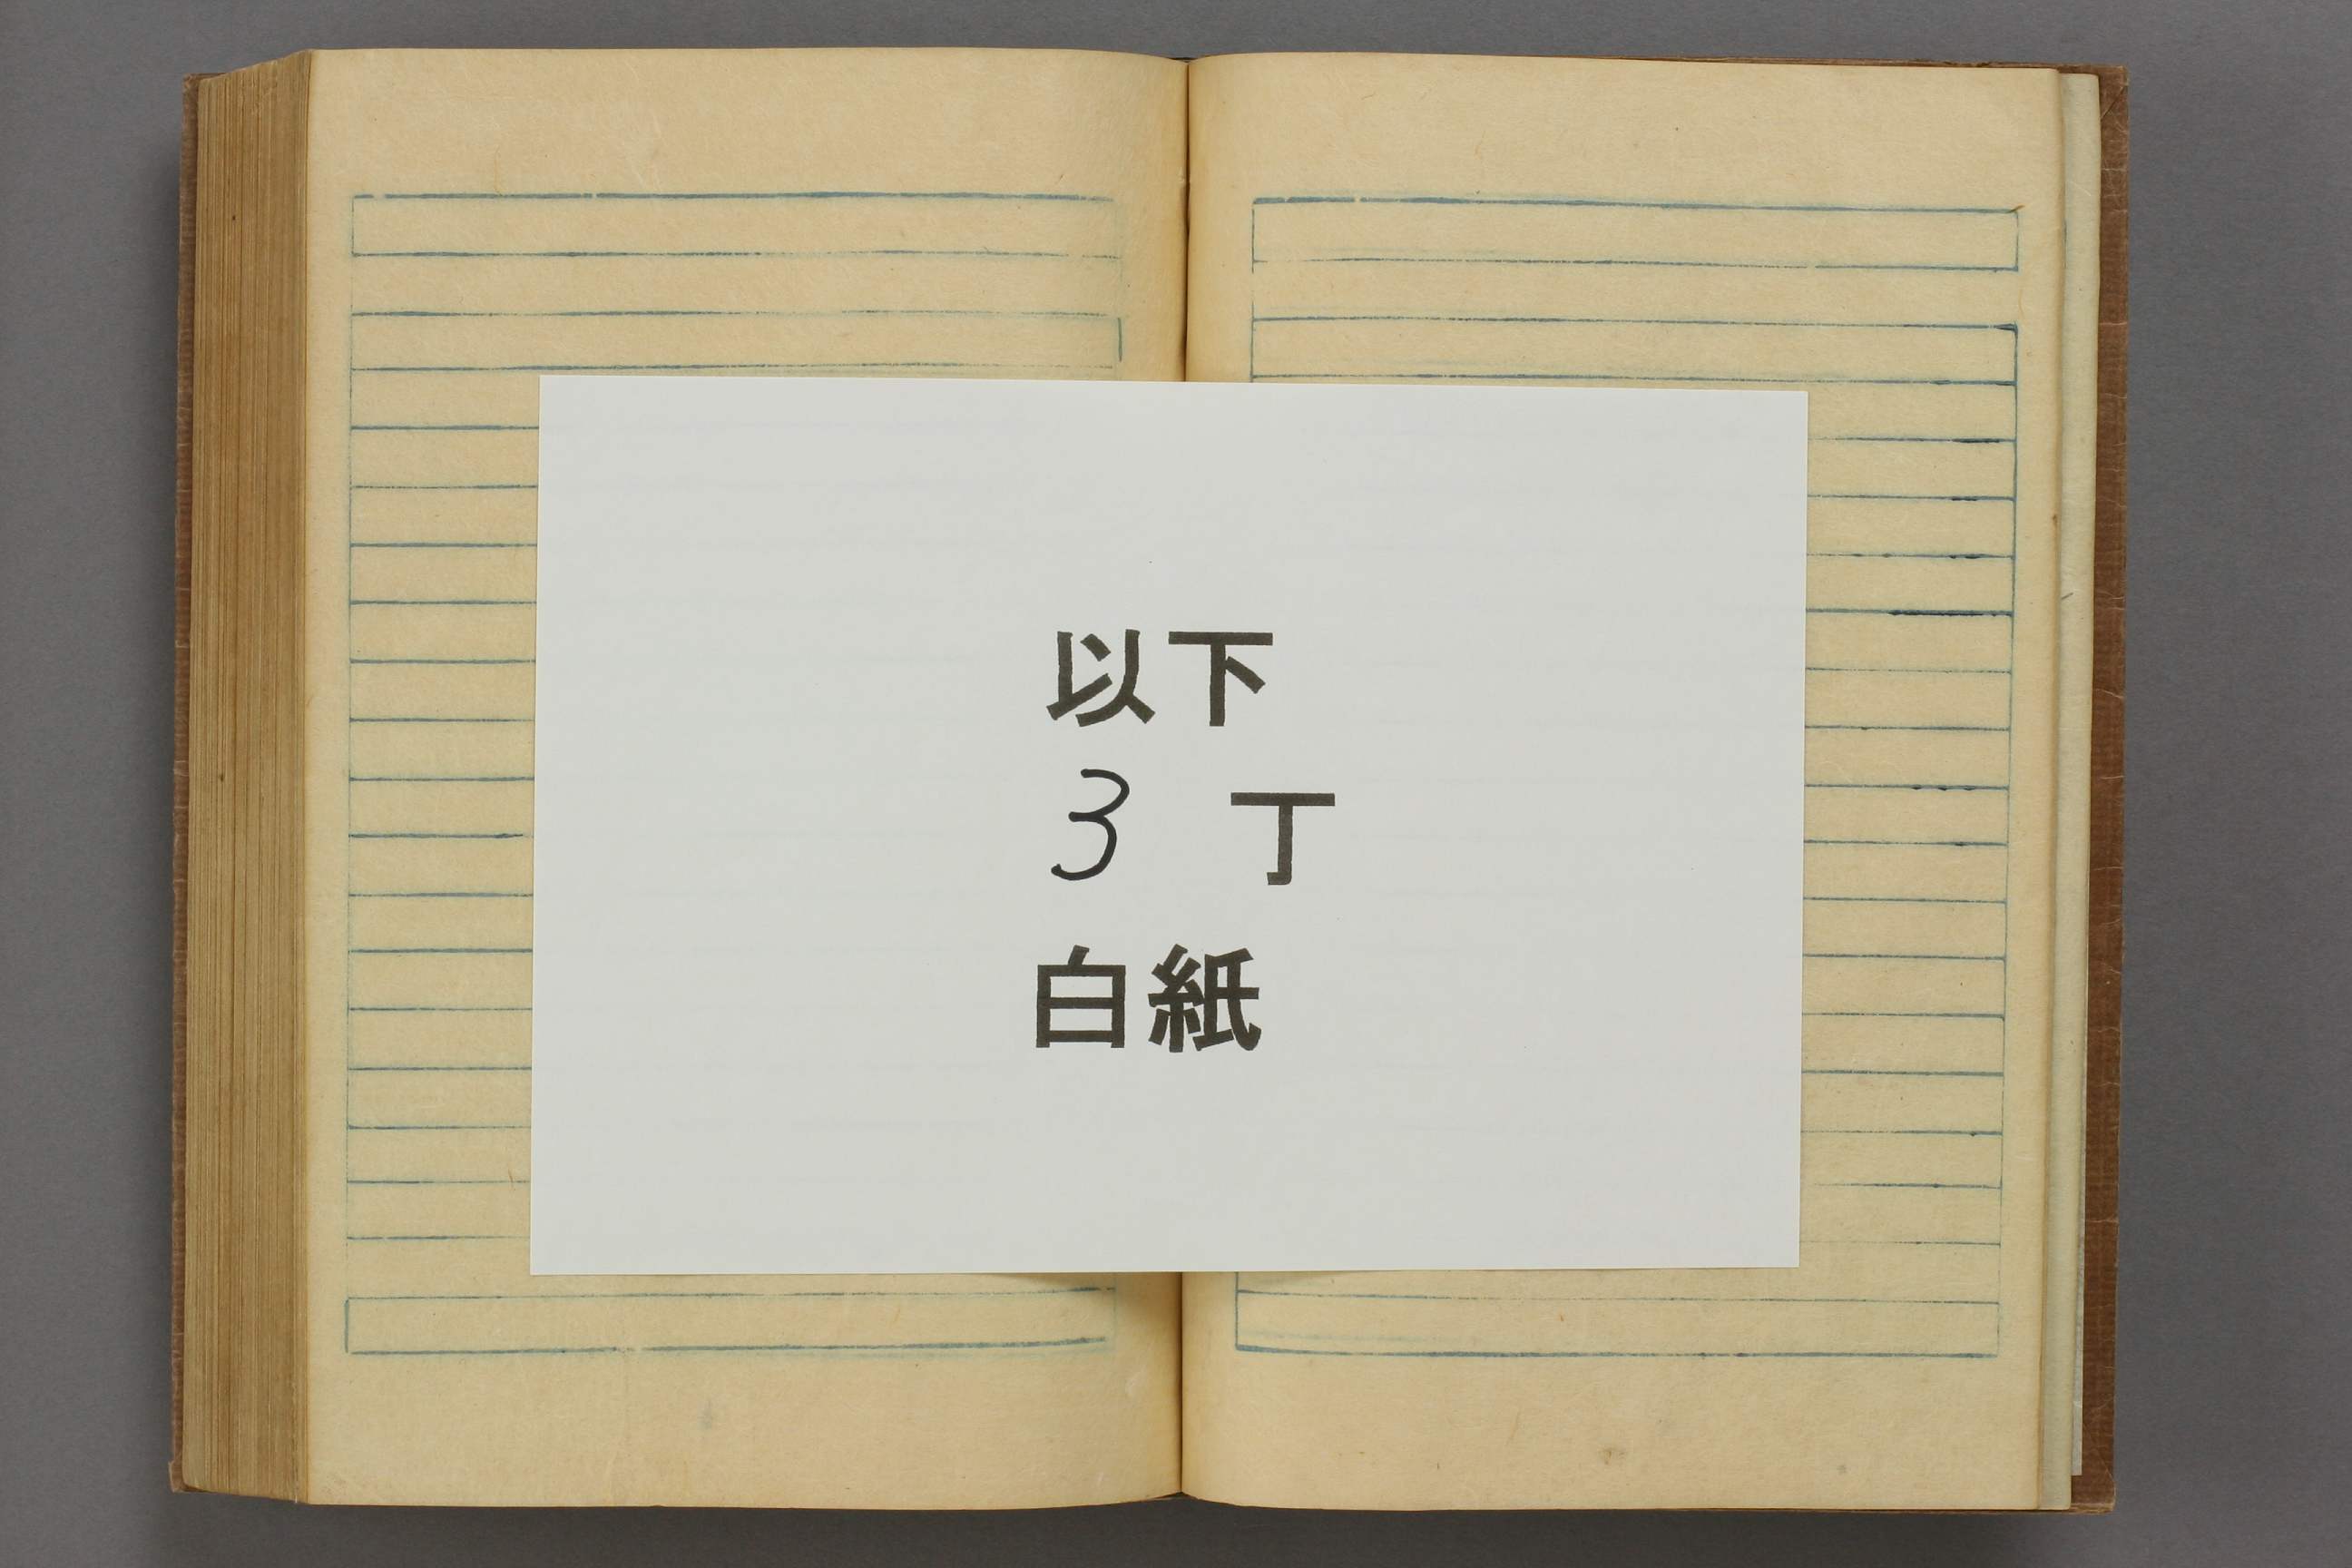 以下
3 丁
白紙